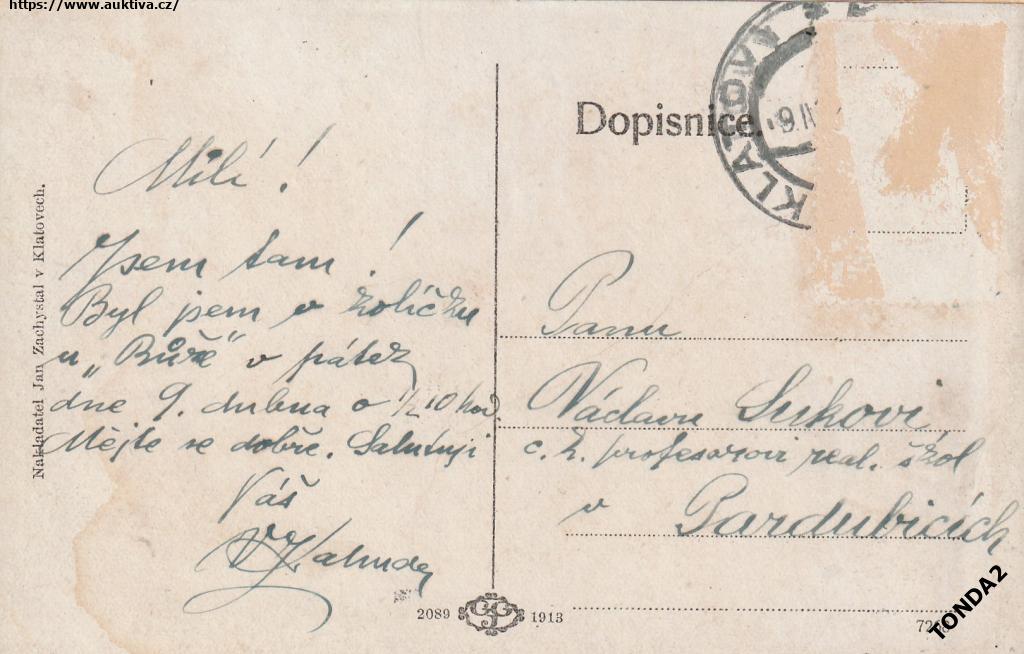 https://www.auktiva.cz/
KLATOVY
9.IV
Dopisnice.
Nakladatel Jan Zachystal v Klatovech.
Milí!
Jsem tam!
Byl jsem v kolíčku
u „Růže" v pátek
dne 9. dubna o 1/2 10 hod.
Mějte se dobře. Salutuji
Váš
Panu
Václavu Sukovi,
c. k. profesorovi real. škol
v Pardubicích
2089 1913
TONDA2